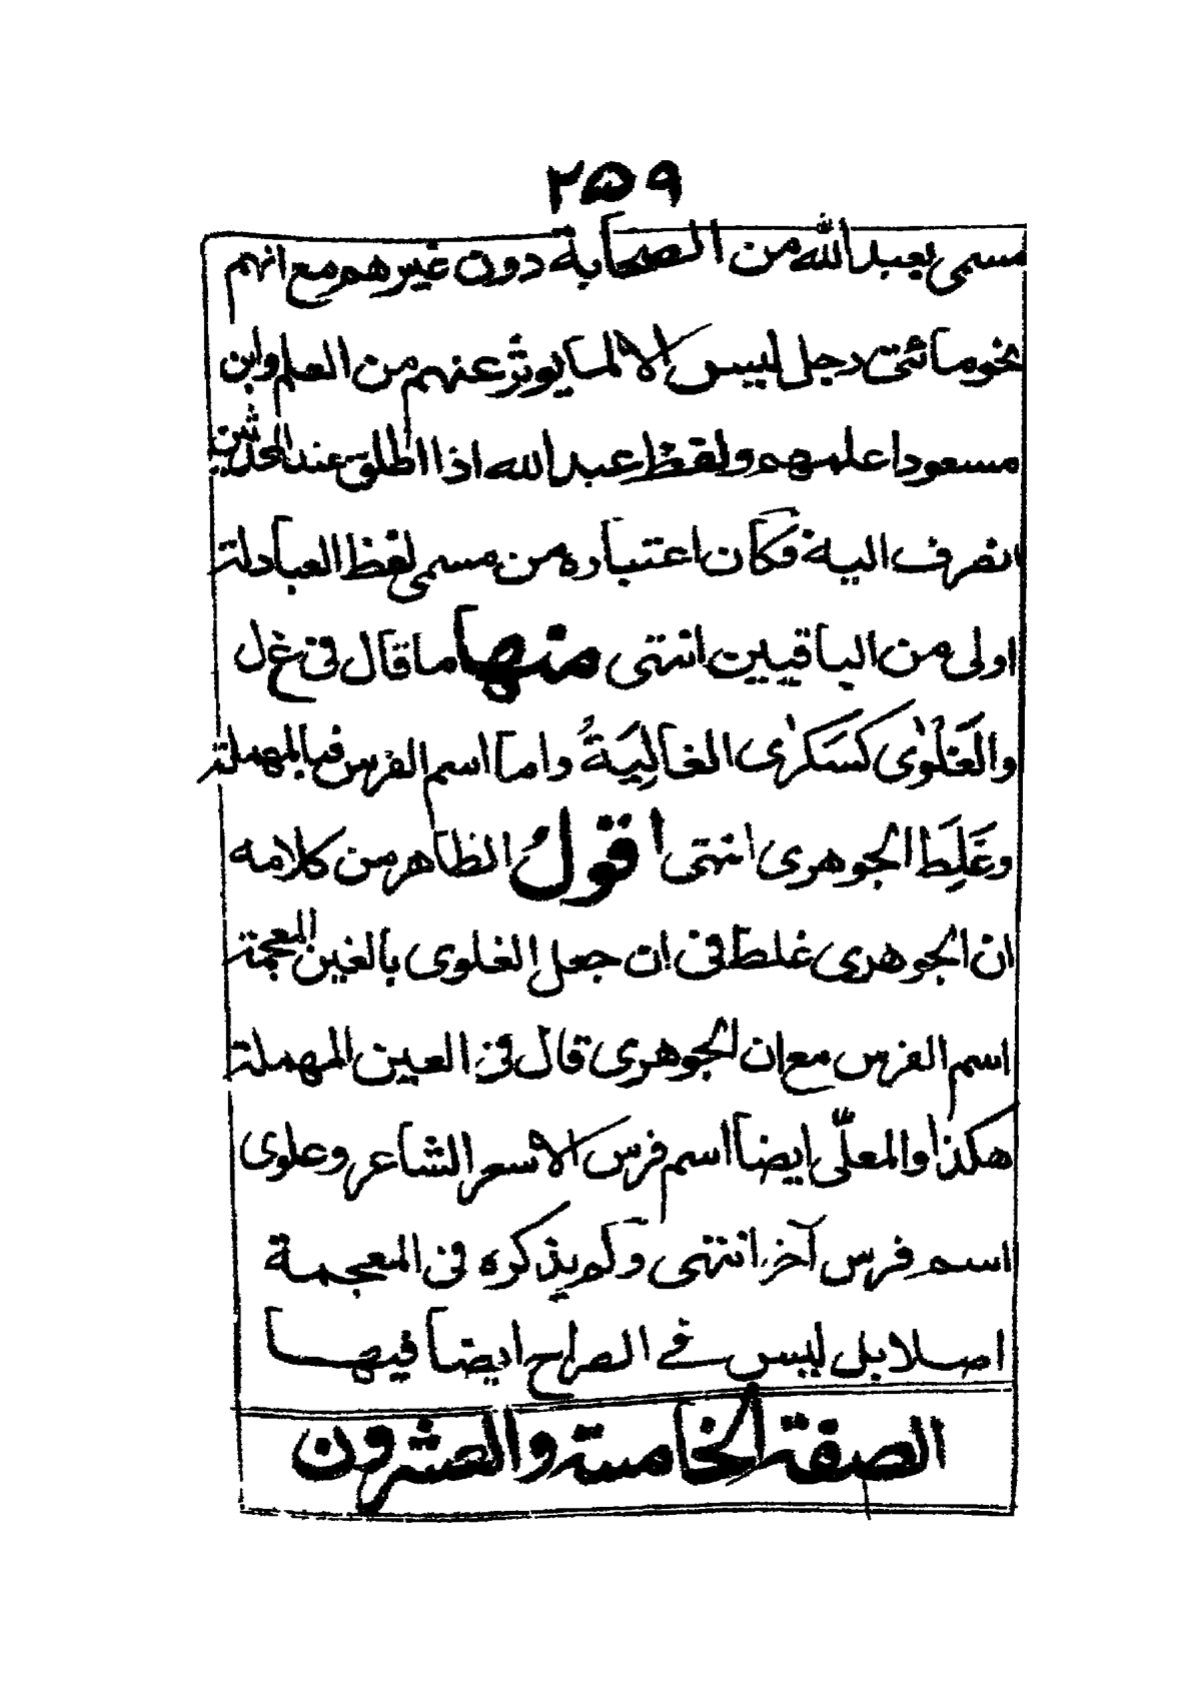 ٢٥٩
مسمى بعبد الله من الصحابة دون غيرهم مع انهم
نحو مائتى رجل ليس الا لما يوثر عنهم من العلم وابن
مسعود اعلمهم ولفظ عبد الله اذا اطلق عند المحدثين
انصرف اليه فكان اعتباره من مسمى لفظ العبادلة
اولى من الباقيين انتهى منها ما قال فى غ ل
والغَلْوٰى كسَكرٰى الغالِيَةُ واما اسم الفرس فبالمهملة
وغَلِطَ الجوهرى انتهى اقولُ الظاهر من كلامه
ان الجوهرى غلط فى ان جعل الغلوى بالغين المعجمة
اسم الفرس مع ان الجوهرى قال فى العين المهملة
هكذا والمعلّى ايضا اسم فرس الاسعر الشاعر وعلوى
اسم فرس آخر انتهى ولم يذكره فى المعجمة
اصلا بل ليس فى الصراح ايضا فيها
الصفة الخامسة والعشرون